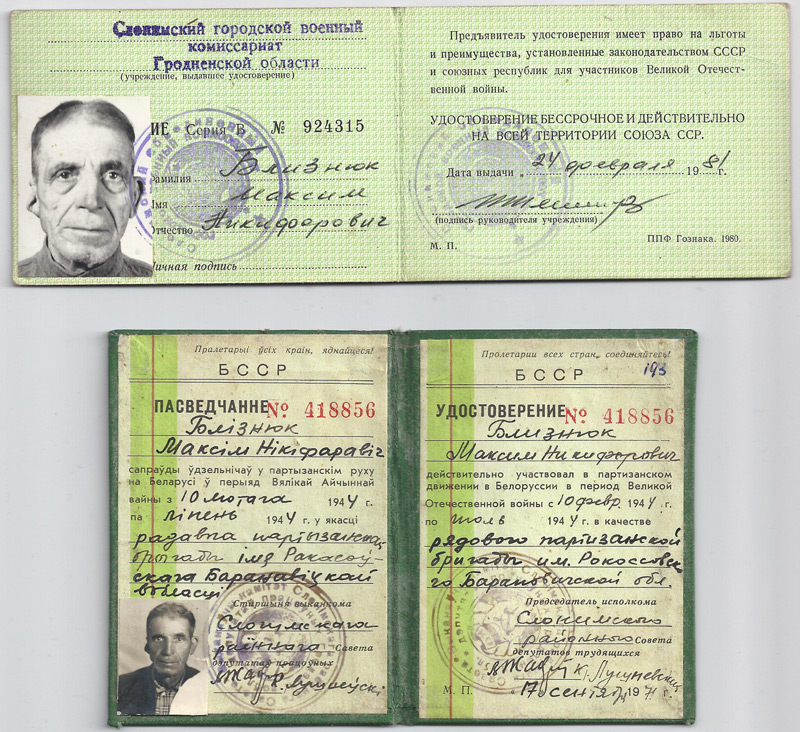 Слонимский городской военный
комиссариат
Гродненской области
(учреждение, выдавшее удостоверение)
ИЕ Серия В № 924315
Фамилия Близнюк
Имя Максим
Отчество Никифорович
Личная подпись
Предъявитель удостоверения имеет право на льготы
и преимущества, установленные законодательством СССР
и союзных республик для участников Великой Отечест-
венной войны.
УДОСТОВЕРЕНИЕ БЕССРОЧНОЕ И ДЕЙСТВИТЕЛЬНО
НА ВСЕЙ ТЕРРИТОРИИ СОЮЗА ССР.
Дата выдачи „ 24 февраля 1981 г.
(подпись руководителя учреждения)
М. П. ППФ Гознака. 1980.
Пралетарыі ўсіх краін, яднайцеся!
БССР
ПАСВЕДЧАННЕ № 418856
Блізнюк
Максім Нікіфаравіч
сапраўды ўдзельнічаў у партызанскім руху
на Беларусі ў перыяд Вялікай Айчыннай
вайны з 10 лютага 1944 г.
па ліпень 1944 г. у якасці
радавга партызанскай
брыгады імя Ракасоў-
скага Баранавіцкай
вобласці
Старшыня выканкома
Слонімскага
раённага Савета
дэпутатаў працоўных
Пролетарии всех стран, соединяйтесь!
193
БССР
УДОСТОВЕРЕНИЕ № 418856
Близнюк
Максим Никифорович
действительно участвовал в партизанском
движении в Белоруссии в период Великой
Отечественной войны с 10 февр. 1944 г.
по июль 1944 г. в качестве
рядового партизанской
бригады им. Рокоссовско
го Барановичской обл.
Председатель исполкома
Слонимского
районного Совета
депутатов трудящихся
М. П. „17„ сентября 1971 г.